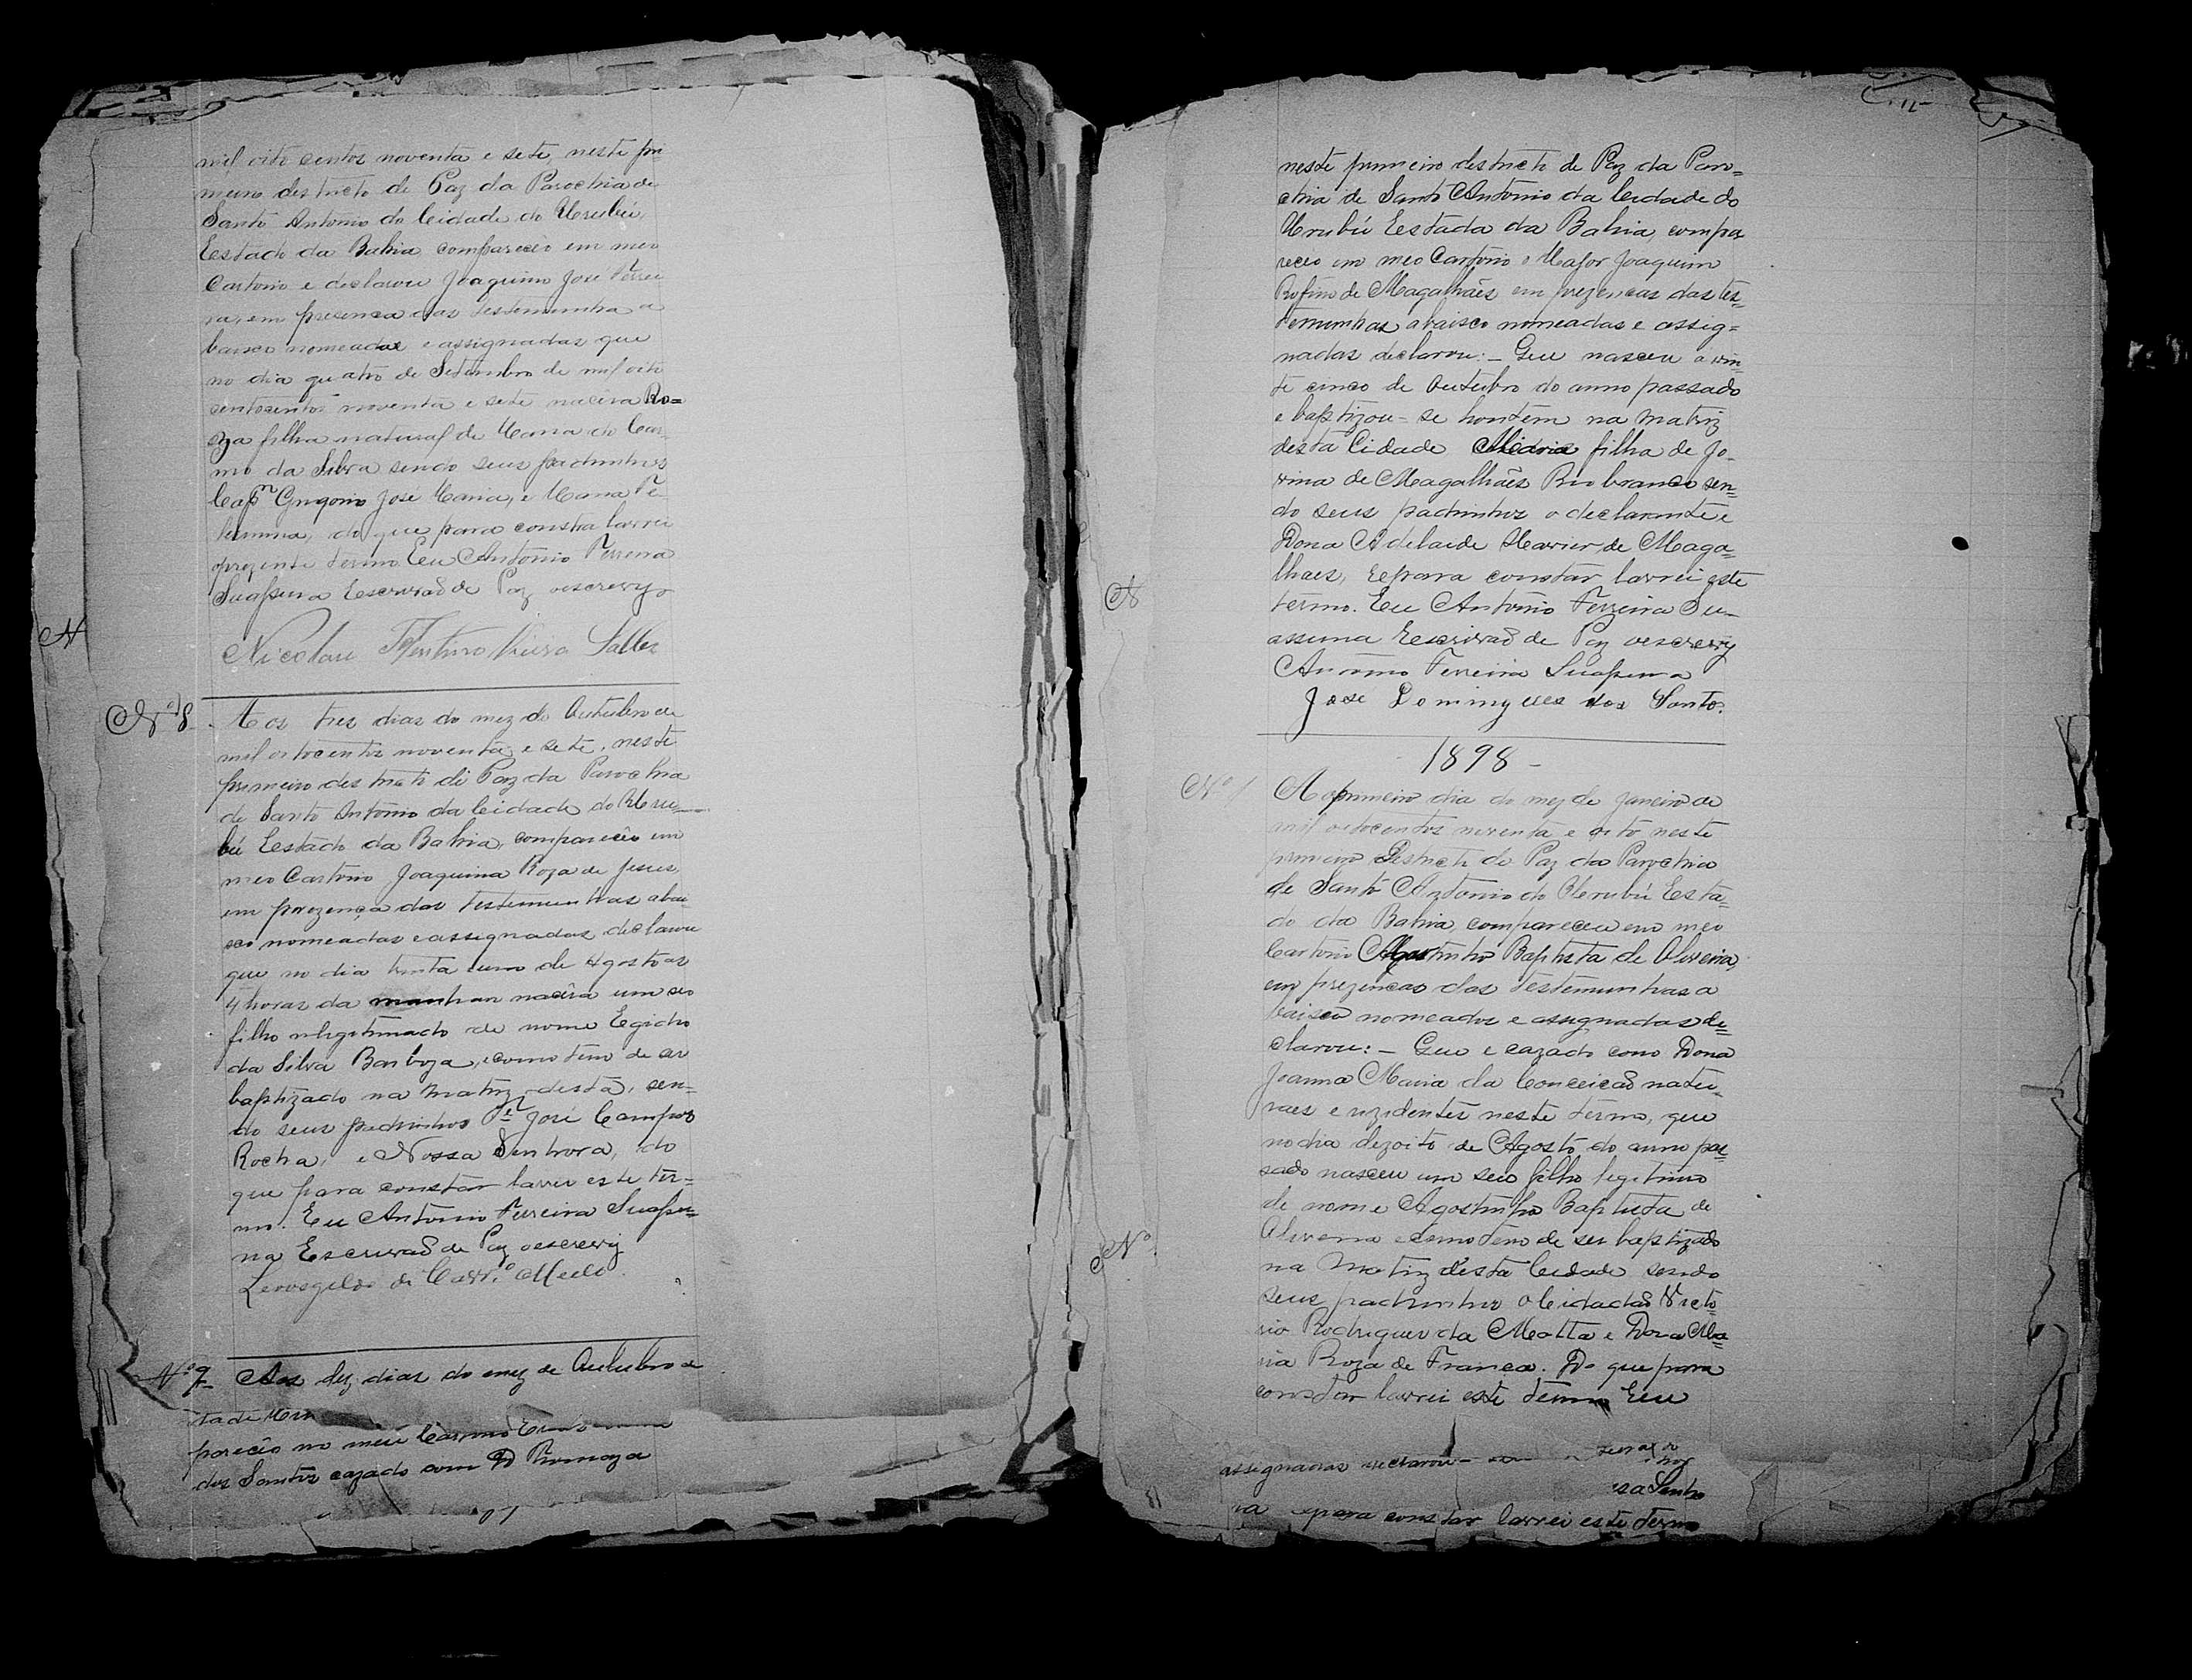 mil oito centos noventa e sete, neste pri
meiro destricto de Paz da Parochia de
Santo Antonio da Cidade do Urubú,
Estado da Bahia compareceo em meo
Cartorio e declarou Joaquim José Ferrei
ra, em presenca das testemunha a
baixo nomeadas e assignadas que
no dia quatro de Setembro de mil oito
centocentos noventa e sete nacêra Ro=
za filha natural de Maria do Car-
mo da Silva sendo seus padrinhos
Capm Grigorio José Maria, e Maria Fe
lismina, do que para constar lavrei
o prezente termo. Eu Antonio Ferreira
Suassuna Escrivaõ de Paz o escrevy
Nicolau Vieira Salles
Nº 8
Aos tres dias do mez de Outubro de
mil oitocentos noventa e sete, neste
primeiro destricto de Paz da Parochia
de Santo Antonio da Cidade do Uru-
bú Estado da Bahia, compareceo em
meo Cartorio Joaquina Roza de Jesus,
em prezença das testemunhas abai
xo nomeadas e assignadas, declarou
que no dia trinta e um de Agosto as
4 horas da manhan nacêra um seo
filho de nome Egidio
da Silva Barboza, e como tem de ser
baptizado na Matriz desta, sen-
do seus padrinhos Pe José Campos
Rocha, e Nossa Senhora, do
que para constar lavrei este ter=
mo. Eu Antonio Ferreira Suassu=
na Escrivaõ de Paz o escrevy
Leovegildo de Carvº Mello
Nº 9
Aos dez dias do mez de Outubro de
pareceo no meu Cartorio
dos Santos cazado com D Thomazia
neste primeiro destricto de Paz da Paro=
chia de Santo Antonio da Cidade do
Urubú Estado da Bahia, compa
receo em meo Cartorio o Major Joaquim
Rufino de Magalhães em prezencas das tes=
temunhas abaixo nomeadas e assig=
nadas declarou:- Que nasceu a vin=
te cinco de Outubro do anno passado
e baptizou-se hontem na Matriz
desta Cidade Maria filha de Jo-
vina de Magalhães Rio branco sen=
do seus padrinhos o declarante e
Dona Adelaide Xavier de Maga=
lhaes, e para constar lavrei este
termo. Eu Antonio Ferreira Su-
assuna Escrivaõ de Paz o escrevy
Antonio Ferreira Suassuna
José Domingues dos Santos
1898-
Nº 1
Ao primeiro dia do mez de Janeiro de
mil oitocentos noventa e oito neste
primeiro Destricto de Paz da Parochia
de Santo Antonio do Urubú Esta=
do da Bahia, compareceu em meo
Cartorio Agostinho Baptista de Oliveira,
em prezencas das testemunhas a
baixo nomeados e assignadas de=
clarou:- Que e cazado com Dona
Joanna Maria da Conceicaõ natu-
raes e rezidentes neste termo, que
no dia dezoito de Agosto do anno pas=
sado nasceu um seu filho legitimo
de nome Agostinho Baptista de
Oliveira e como tem de ser baptizado
na Matriz desta Cidade sendo
seus padrinhos o Cidadaõ Victo=
rio Rodrigues da Motta e Dona Ma
ria Roza de Franca. Do que para
constar lavrei este termo Eu
assignadas declarou-
sa Senho
ra e para constar lavrei este termo